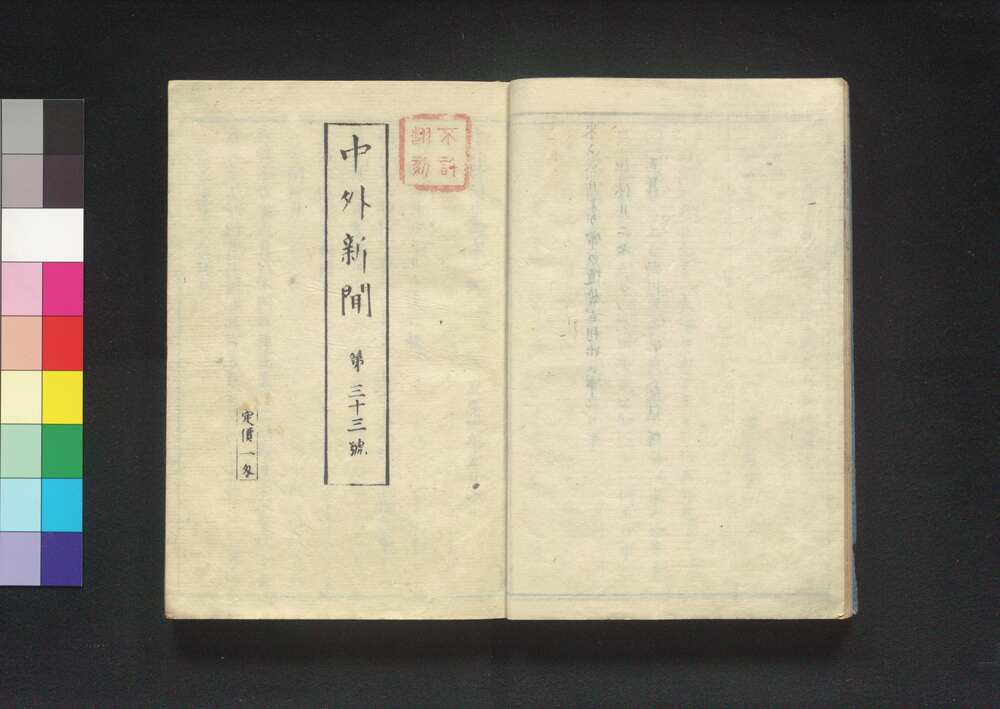 不許
翻刻
中外新聞 第三十三號
定價一匁